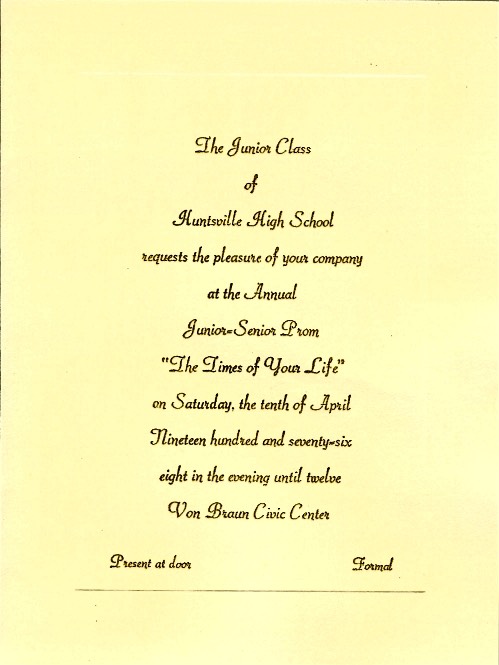 The Junior Class
of
Huntsville High School
requests the pleasure of your company
at the Annual
Junior-Senior Prom
"The Times of Your Life"
on Saturday, the tenth of April
Nineteen hundred and seventy-six
eight in the evening until twelve
Von Braun Civic Center
Present at door Formal